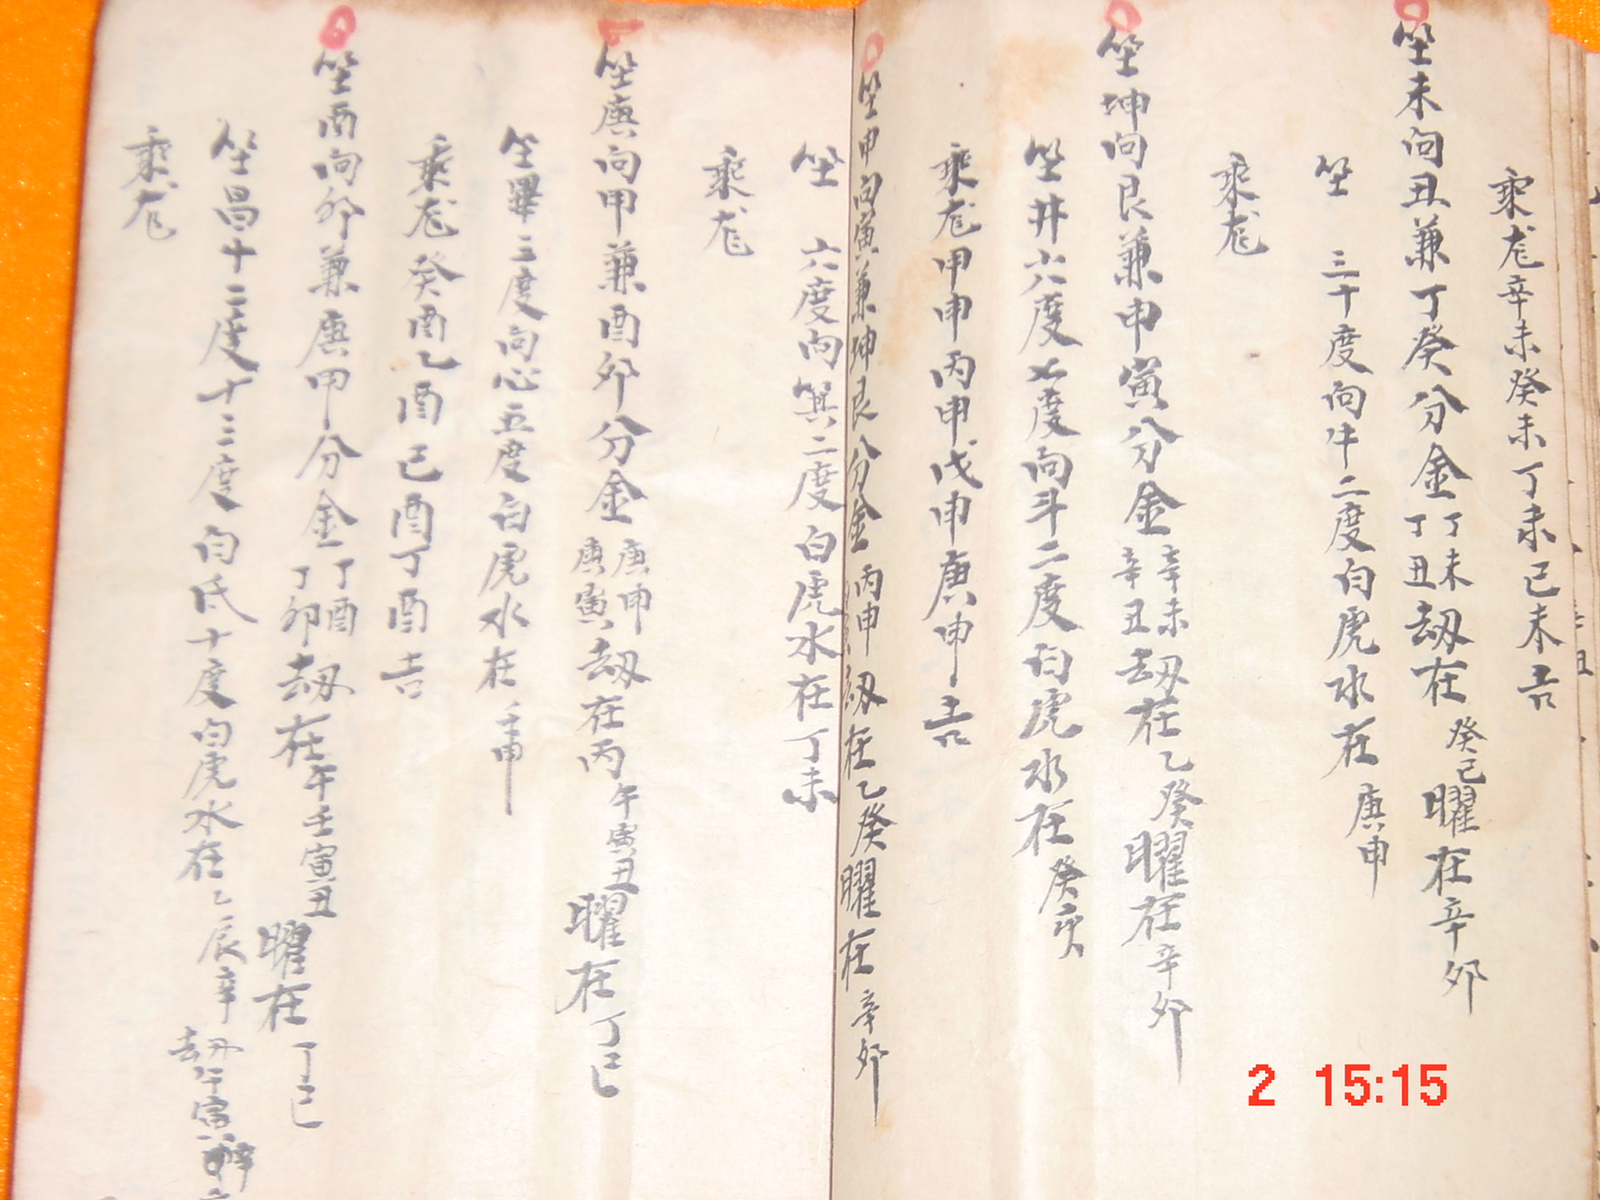 乘龙辛未癸未丁未己未吉
坐未向丑兼丁癸分金丁未丁丑劫在癸己曜在辛卯
坐 三十度向牛二度白虎水在庚申
乘龙
坐坤向艮兼申寅分金辛未辛丑劫在乙癸曜在辛卯
坐井六度七度向斗二度白虎水在癸亥
乘龙甲申丙申戊申庚申吉
坐申向寅兼坤艮分金丙申劫在乙癸曜在辛卯
坐 六度向箕二度白虎水在丁未
乘龙
坐庚向甲兼酉卯分金庚申庚寅劫在丙午寅丑曜在丁巳
坐畢三度向心五度白虎水在壬申
乘龙癸酉乙酉己酉丁酉吉
坐酉向卯兼庚甲分金丁酉丁卯劫在午壬寅丑曜在丁巳
坐昌十二度十三度向氐十度白虎水在乙辰辛劫午寅
乘龙
2 15:15